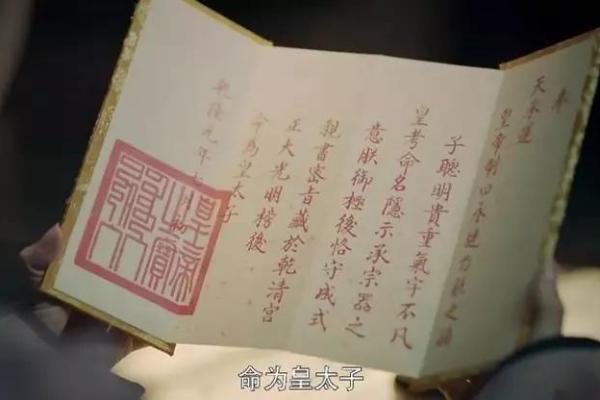 奉
天承運
皇帝制曰永璉乃朕之嫡
子聰明貴重氣宇不凡
皇考命名隱示承宗器之
意朕御極後恪守成式
親書密旨藏於乾清宮
正大光明榜後
命為皇太子
乾隆元年七月初
皇帝之寶
命为皇太子